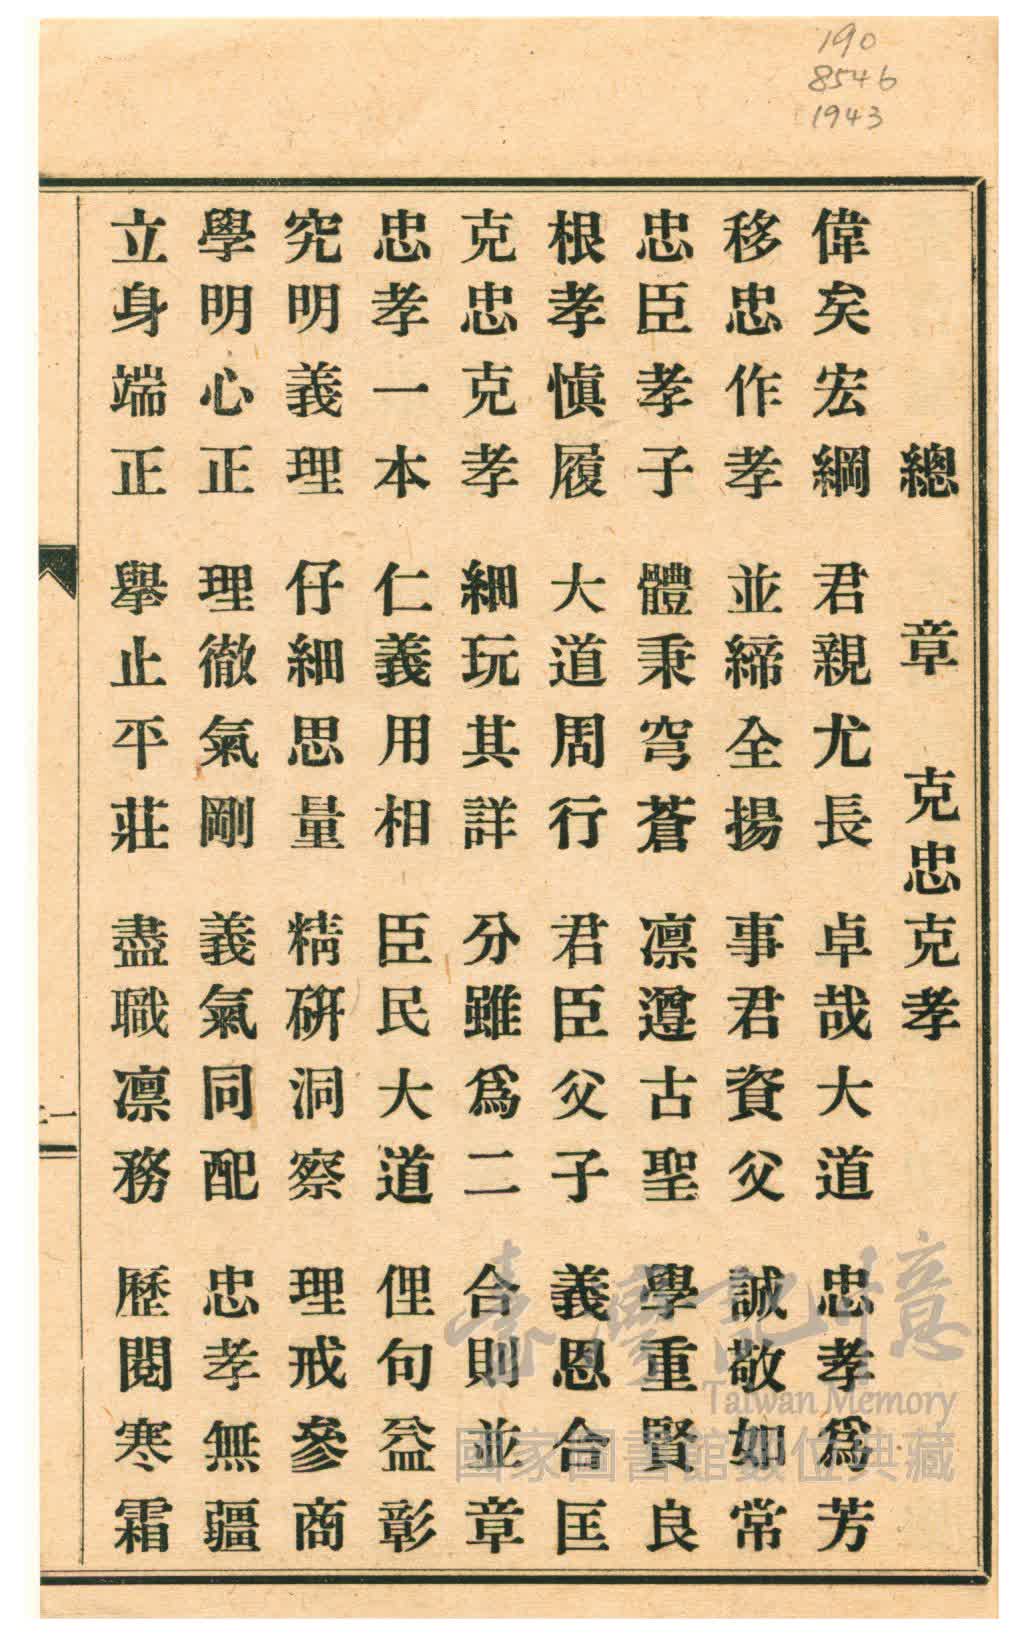 190
8546
1943
總章 克忠克孝
偉矣宏綱 君親尤長 卓哉大道 忠孝為芳
移忠作孝 並締全揚 事君資父 誠敬如常
忠臣孝子 體秉穹蒼 凛遵古聖 學重賢良
根孝慎履 大道周行 君臣父子 義恩合匡
克忠克孝 細玩其詳 分雖為二 合則並章
忠孝一本 仁義用相 臣民大道 俚句益彰
究明義理 仔細思量 精研洞察 理戒參商
學明心正 理徹氣剛 義氣同配 忠孝無疆
立身端正 舉止平莊 盡職凛務 歷閱寒霜
臺灣記憶
Taiwan Memory
國家圖書館數位典藏